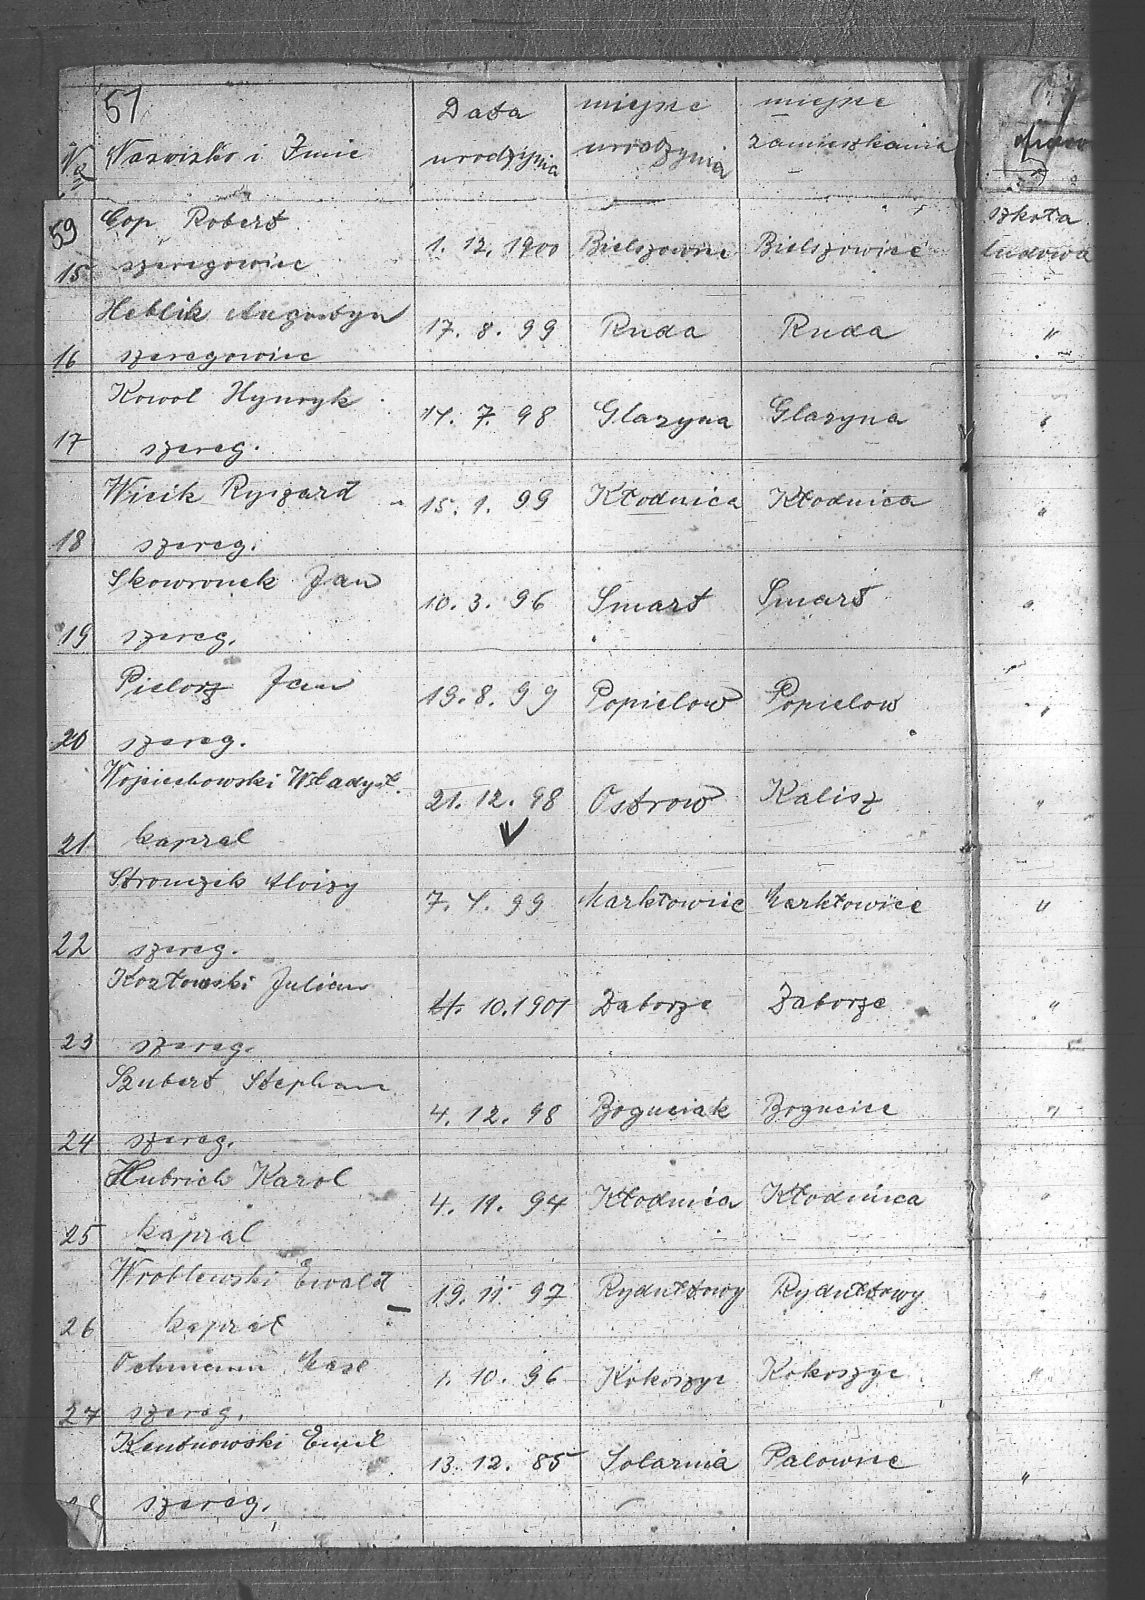 51
Nazwisko i Imie Data urodzynia miejsce urodzynia miejsce zamieszkania
59
Cop Robert 1. 12. 1900 Bielszowice Bielszowice szkoła ludowa
15 szeregowiec
Heblik Augustyn 17. 8. 99 Ruda Ruda "
16 szeregowiec
Kowol Hynryk 14. 7. 98 Glazyna Glazyna "
17 szereg.
Wicik Ryszard 15. 1. 99 Kłodnica Kłodnica "
18 szereg.
Skowronek Jan 10. 3. 96 Smart Smart "
19 szereg.
Pielorz Jan 19. 8. 99 Popielow Popielow "
20 szereg.
Wojciechowski Władysł. 21. 12. 98 Ostrow Kalisz "
21 kapral
Stronczek Aloizy 7. 4. 99 Marktowice Marktowice "
22 szereg.
Kozłowski Julian 10. 1901 Zaborze Zaborze "
23 szereg.
Szubert Stephan 4. 12. 98 Boguciak Bogucice "
24 szereg.
Hubrich Karol 4. 11. 94 Kłodnica Kłodnica "
25 kapral
Wroblewski Ewald 19. 11. 97 Rydułtowy Rydułtowy "
26 kapral
Ochmann 1. 10. 96 Kokoszyc Kokoszyc "
27 szereg.
Emil 13. 12. 85 Solarnia Palowice "
szereg.